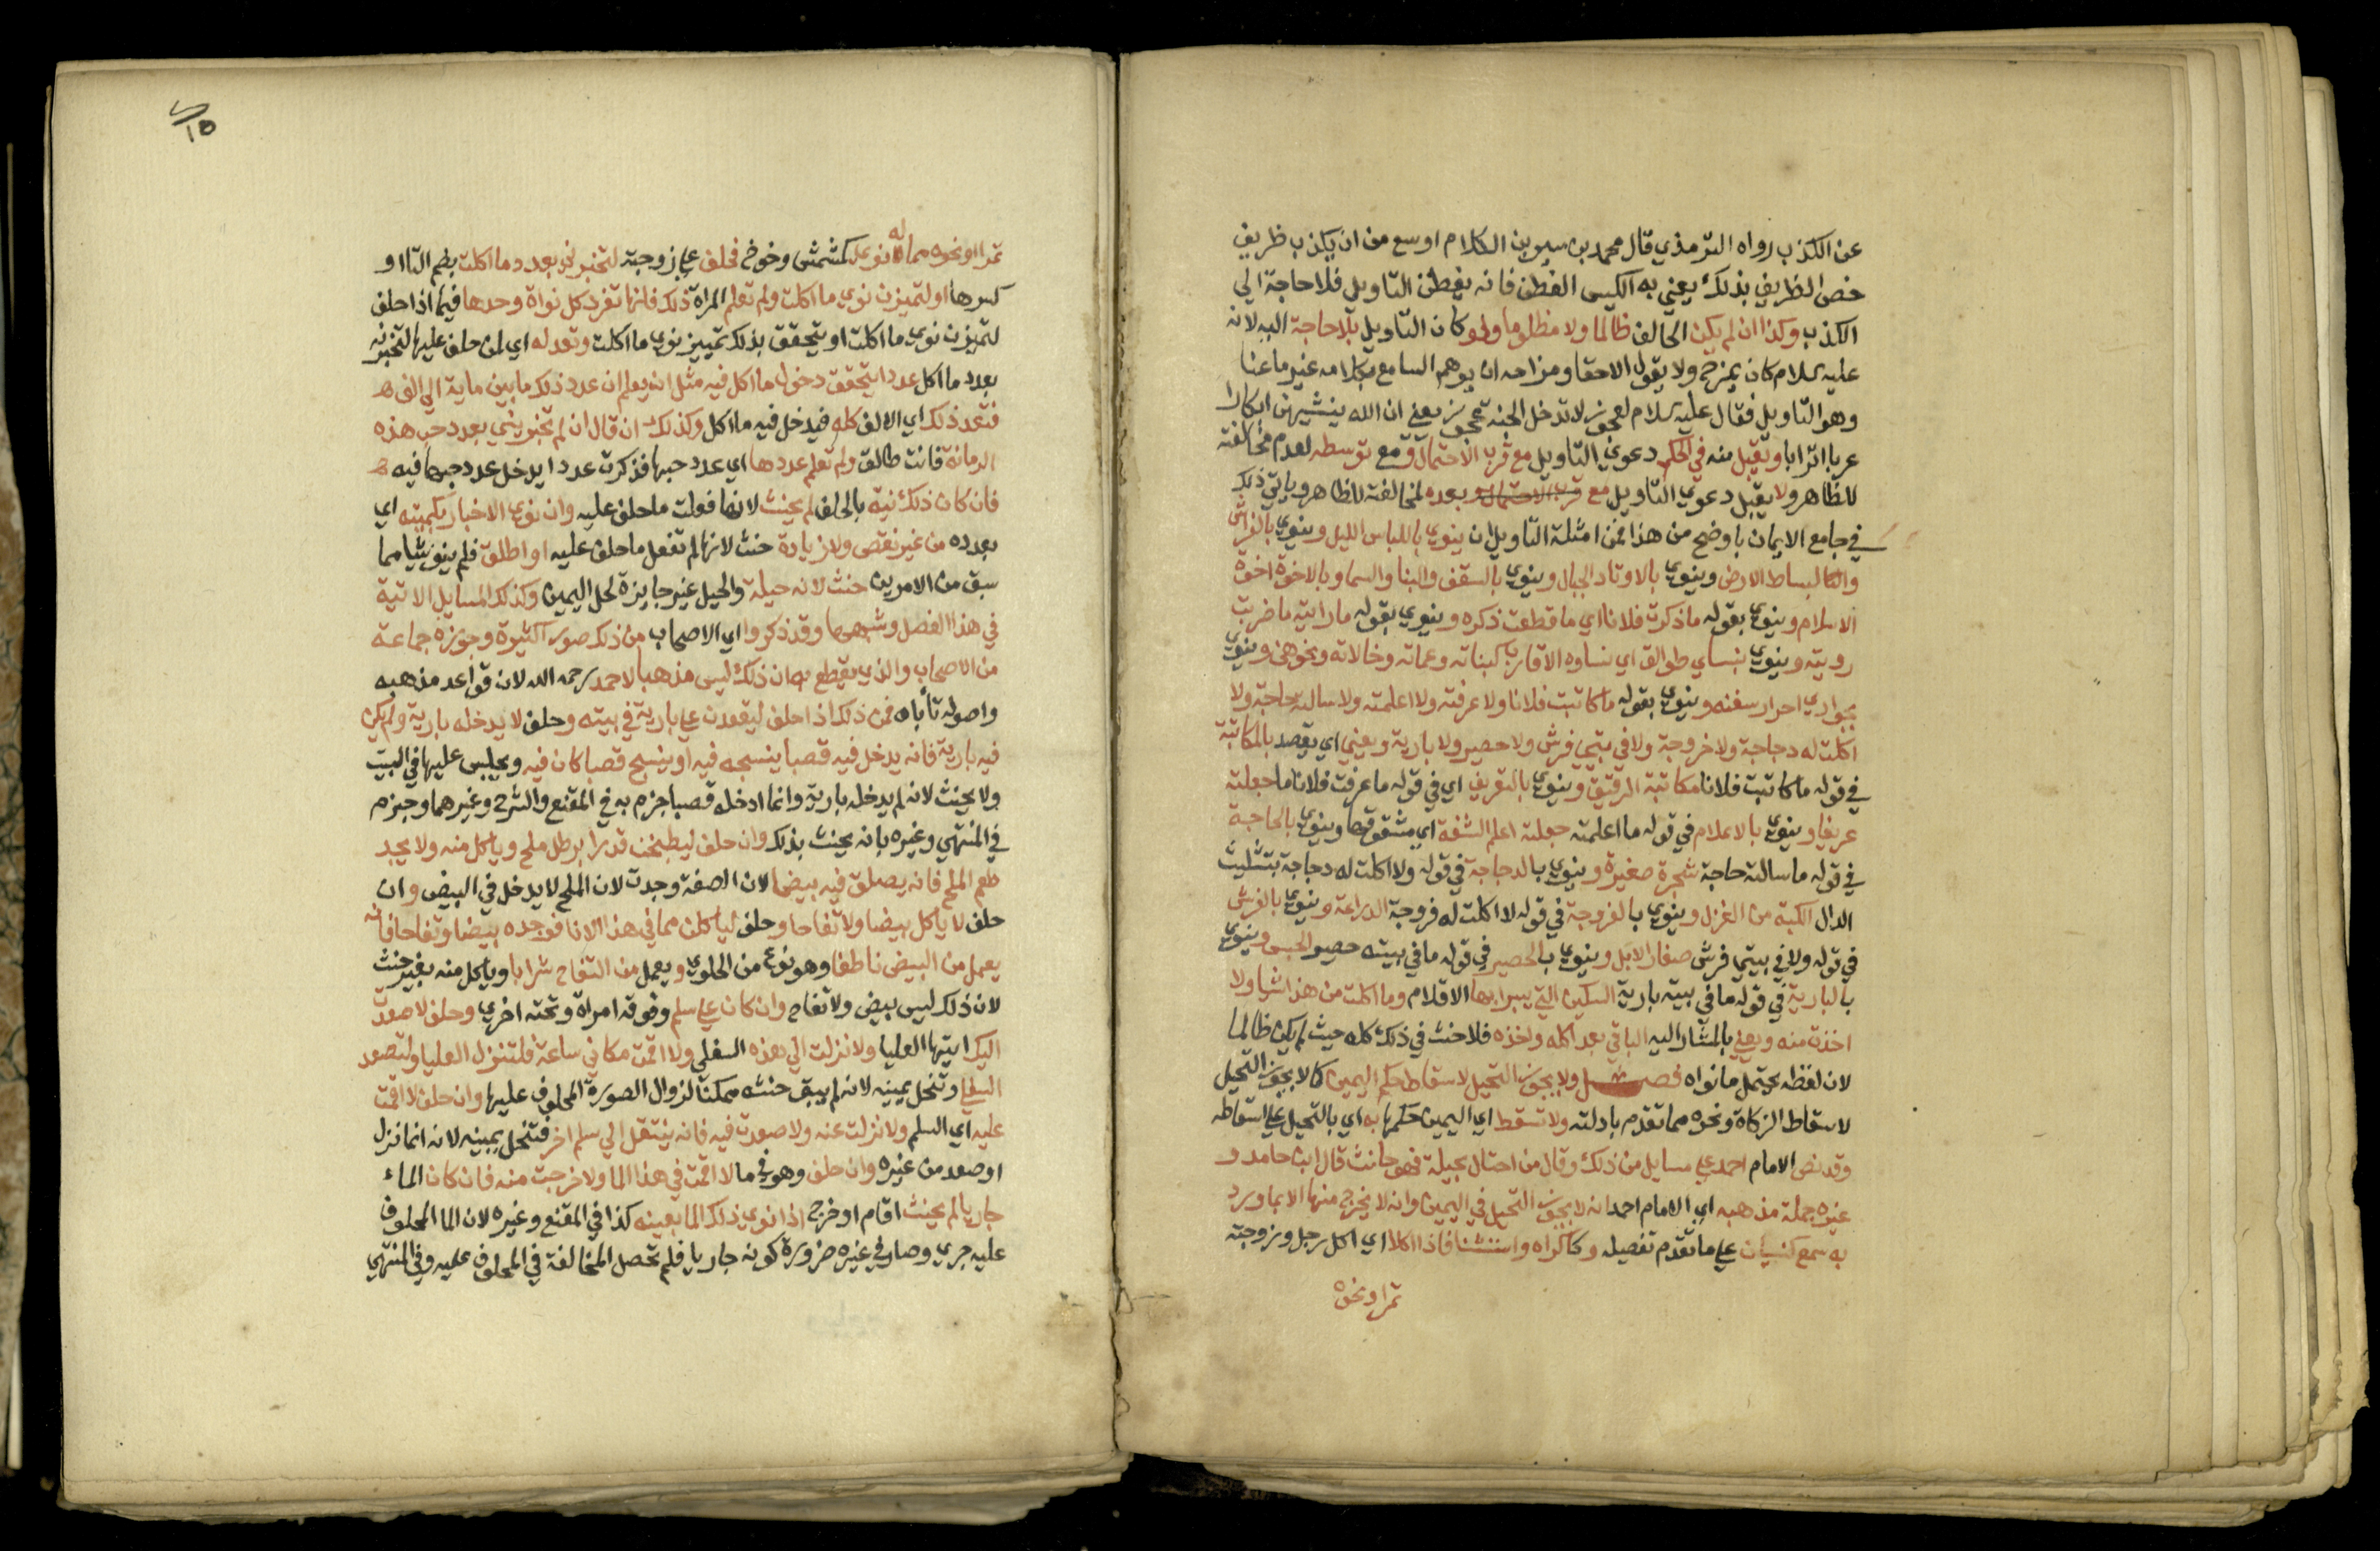 عن الكذب رواه الترمذي قال محمد بن سيرين الكلام اوسع من ان يكذب ظريف
خص الظريف بذلك يعني به الكيس الفطن فانه يفطن التاويل فلا حاجة الي
الكذب وكذا ان لم يكن الحالف ظالما ولا مظلوما ولو كان التاويل بلا حاجة اليه لانه
عليه سلام كان يمزح ولا يقول الا حقا ومزاحه ان يوهم السامع بكلامه غير ما عنا
وهو التاويل فقال عليه سلام لعجوز لا تدخل الجنة عجوز يعني ان الله ينشيهن ابكارا
عربا اترابا ويقبل منه في الحكم دعوي التاويل مع قرب الاحتمال ومع توسطه لعدم مخالفته
للظاهر ولا يقبل دعوي التاويل مع بعده لمخالفة للظاهر وياتي ذلك
في جامع الايمان باوضح من هذا فمن امثلة التاويل ان ينوي باللباس الليل وينوي بالفراش
والبساط الارض وينوي بالاوتاد الجبال وينوي بالسقف والبنا والسما وبالاخوة اخوة
الاسلام وينوي بقوله ما ذكرت فلانا اي ما قطعت ذكره وينوي بقوله ما رايته ما ضربت
رويته وينوي بنساي طوالق اي نساوه الاقارب كبناته وعماته وخالاته ونحوهن وينوي
بجواري احرار سفنه وينوي بقوله ما كاتبت فلانا ولا عرفته ولا اعلمته ولا سالته حاجة ولا
اكلت له دجاجة ولا فروجة ولا في بيتي فرش ولا حصير ولا بارية ويعني اي يقصد بالمكاتبة
في قوله ما كاتبت فلانا مكاتبة الرقيق وينوي بالتعريف اي في قوله ما عرفت فلانا ما جعلته
عريفا وينوي بالاعلام في قوله ما اعلمته جعلته اعلم الشفة اي مشقوقها وينوي بالحاجة
في قوله ما سالته حاجة شجرة صغيرة وينوي بالدجاجة في قوله ولا اكلت له دجاجة بتثليث
الدال الكبة من الغزل وينوي بالفروجة في قوله لا اكلت له فروجة الدراعة وينوي بالفرش
في قوله ولا في بيتي فرش صغار الابل وينوي بالحصير في قوله ما في بيته حصير الحبس وينوي
بالبارية في قوله ما في بيته بارية السكين التي يبرا بها الاقلام وما اكلت من هذا شيا ولا
اخذت منه ويعني بالمشار اليه الباقي بعد اكله واخذه فلا حنث في ذلك كله حيث لم يكن ظالما
لان لفظه يحتمل ما نواه فصــل ولا يجوز التحيل لاسقاط حكم اليمين كما لا يجوز التحيل
لاسقاط الزكاة ونحوه مما تقدم بادلته ولا تسقط اي اليمين حكمها به اي بالتحيل علي اسقاطه
وقد نص الامام احمد علي مسايل من ذلك وقال من احتال بحيلة فهو حانث قال ابن حامد و
غيره جملة مذهبه اي الامام احمد انه لا يجوز التحيل في اليمين وانه لا يخرج منها الا بما ورد
به سمع كنسيان علي ما تقدم تفصيله وكاكراه واستثنا فاذا اكلا اي اكل رجل وزوجته
تمرا ونحوه
١٥
تمرا ونحوه مما له نوي كمشمش وخوخ فحلف علي زوجته لتخبرني بعدد ما اكلت بضم التا او
كسرها او لتميزن نوي ما اكلت ولم تعلم المراة ذلك فانها تفرد كل نواة وحدها فيما اذا حلف
لتميزن نوي ما اكلت او يتحقق بذلك تمييز نوي ما اكلت وتعد له اي لمن حلف عليها لتخبرنه
بعدد ما اكل عددا يتحقق دخول ما اكل فيه مثل ان يعلم ان عدد ذلك ما بين ماية الي الف
فتعد ذلك اي الالف كله فيدخل فيه ما اكل وكذلك ان قال ان لم تخبريني بعدد حب هذه
الرمانة فانت طالق ولم تعلم عددها اي عدد حبها فذكرت عددا يدخل عدد حبها فيه
فان كان ذلك نيته بالحلف لم يحنث لانها فعلت ما حلف عليه وان نوي الاخبار بكميته اي
بعدده من غير نقص ولا زيادة حنث لانها لم تفعل ما حلف عليه او اطلق فلم ينو شيا مما
سبق من الامرين حنث لانه حيلة والحيل غير جايزة لحل اليمين وكذلك المسايل الاتية
في هذا الفصل وشبهها وقد ذكروا اي الاصحاب من ذلك صورا كثيرة وجوزه جماعة
من الاصحاب والذي يقطع به ان ذلك ليس مذهبا لاحمد رحمه الله لان قواعد مذهبه
واصوله تاباه فمن ذلك اذا حلف ليقعدن علي بارية في بيته وحلف لا يدخله بارية ولم يكن
فيه بارية فانه يدخل فيه قصبا ينسجه فيه او ينسج قصبا كان فيه ويجلس عليها في البيت
ولا يحنث لانه لم يدخله بارية وانما ادخله قصبا جزم به في المقنع والشرح وغيرهما وجزم
في المنتهي وغيره بانه يحنث بذلك وان حلف ليطبخن قدرا برطل ملح وياكل منه ولا يجد
طعم الملح فانه يصلق فيه بيضا لان الصفة وجدت لان الملح لا يدخل في البيض وان
حلف لا ياكل بيضا ولا تفاحا وحلف لياكلن مما في هذا الانا فوجده بيضا وتفاحا فانه
يعمل من البيض ناطفا وهو نوع من الحلوي ويعمل من التفاح شرابا وياكل منه بغير حنث
لان ذلك ليس ببيض ولا تفاح وان كان علي سلم وفوقه امراة وتحته اخري وحلف لا صعدت
اليك ايتها العليا ولا نزلت الي هذه السفلي ولا اقمت مكاني ساعة فلتنزل العليا ولتصعد
السفلي وتنحل يمينه لانه لم يبق حنثه ممكنا لزوال الصورة المحلوف عليها وان حلف لا اقمت
عليه اي السلم ولا نزلت عنه ولا صعدت فيه فانه ينتقل الي سلم اخر فتنحل يمينه لانه انما نزل
او صعد من غيره وان حلف وهو في ما لا اقمت في هذا الما ولا خرجت منه فان كان الماء
جاريا لم يحنث اقام او خرج اذا نوي ذلك الما بعينه كذا في المقنع وغيره لان الما المحلوف
عليه جري وصار في غيره ضرورة كونه جاريا فلم تحصل المخالفة في المحلوف عليه وفي المنتهي